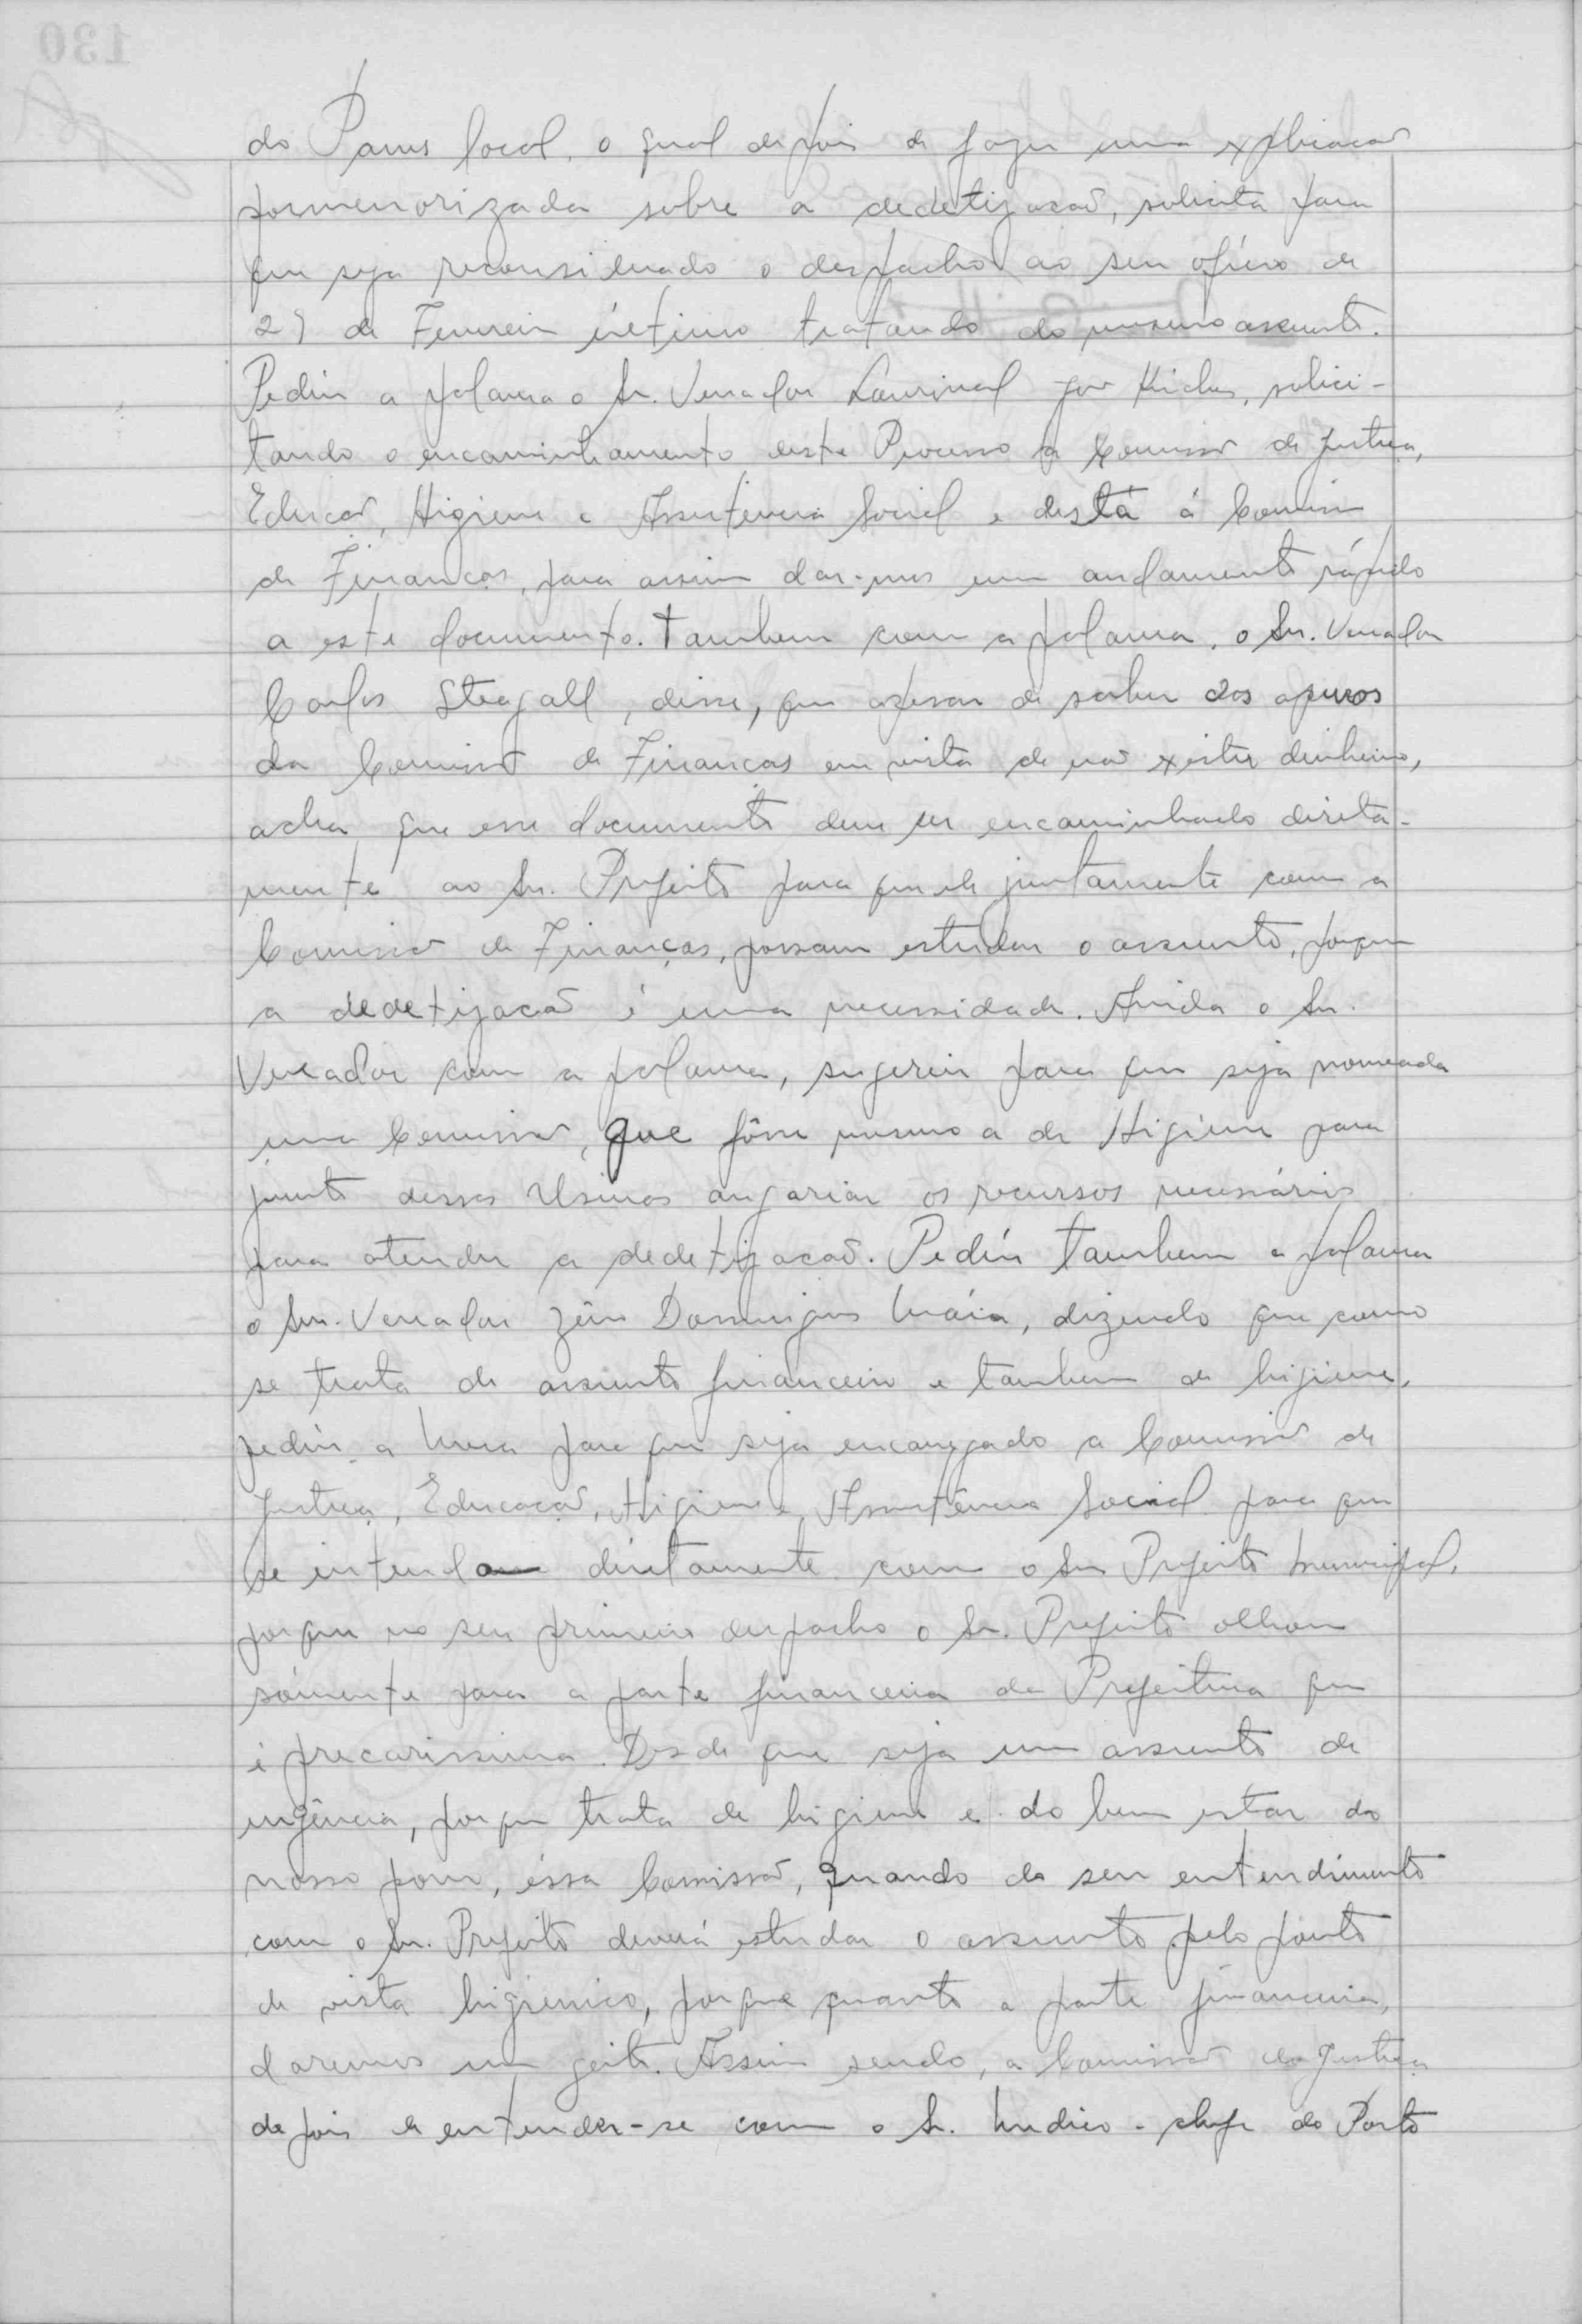 do Pams local, o qual depois de fazer uma explicacão
pormenorizada sobre a dedetizacaõ, solicita para
que seja reconsiderado o despacho ao seu ofício de
de Fevereiro último tratando do mesmo assunto.
Pediu a palavra o Sr. Vereador Lourival solici-
tando o encaminhamento deste Processo a Comissão de Justiça,
Educacaõ, Higiene e Assistencia Social e desta á Comissão
de Financas, para assim dar-mos um andamento rápido
a este documento. Tambem com a palavra, o Sr. Vereador
Carlos Steagall, disse, que apesar de saber dos apuros
da Comissão de Financas em vista de não existir dinheiro,
acha que esse documento deve ser encaminhado direta-
mente ao Sr. Prefeito para que ele juntamente com a
Comissão de Finanças, possam estudar o assunto, porque
a dedetizacaõ é uma necessidade. Ainda o Sr.
Vereador com a palavra, sugeriu para que seja nomeada
uma Comissão, que fôsse mesmo a de Higiene para
junto dessas Usinas angariar os recursos necessários
para atender a dedetizacaõ. Pediu tambem a palavra
o Snr. Vereador Domingues Maia, dizendo que como
se trata de assunto financeiro e tambem de higiene,
pediu a Mesa para que seja encarregado a Comissão de
Justiça, Educacaõ, Higiene e Assistência Social para que
se entendam diretamente com o Sr. Prefeito Municipal,
porque no seu primeiro despacho o Sr. Prefeito olhou
sómente para a parte financeira da Prefeitura que
é precarissima. Desde que seja um assunto de
urgência, porque trata de higiene e do bem estar do
nosso povo, éssa Comissaõ, quando do seu entendimento
com o Sr. Prefeito deverá estudar o assunto pelo ponto
de vista higienico, porque quanto a parte financeira,
daremos um geito. Assim sendo, a Comissão de Justiça
depois de entender-se com o Sr. Medico-chefe do Posto